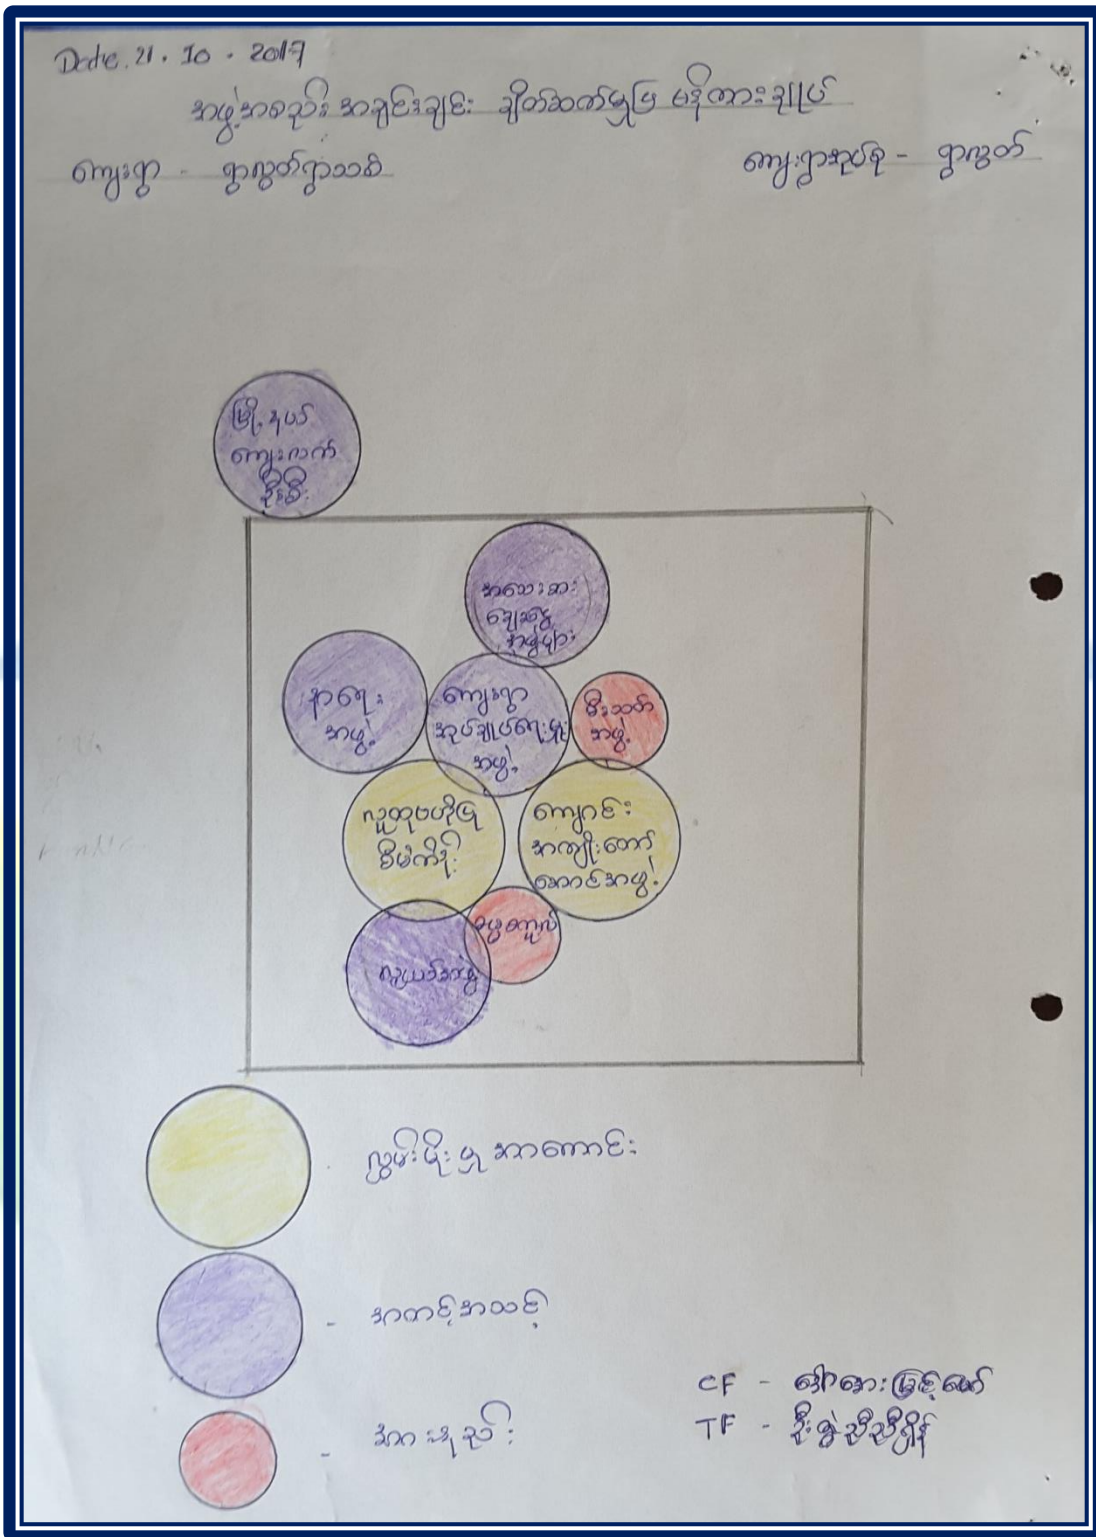 Date. 21 . 10 . 2017
အဖွဲ့အစည်း အချင်းချင်း ချိတ်ဆက်မှုပြ မန်ကားချုပ်
ကျေးရွာ - ရွာလွတ်ရွာသစ်
ကျေးရွာအုပ်စု - ရွာလွတ်
မြို့နယ်
ကျေးလက်
ဦးစီး
အသေးစား
ချေးငွေ
အဖွဲ့များ
နာရေး
အဖွဲ့
ကျေးရွာ
အုပ်ချုပ်ရေးမှူး
အဖွဲ့
မီးသတ်
အဖွဲ့
လူထုဗဟိုပြု
စီမံကိန်း
ကျောင်း
အကျိုးတော်
ဆောင်အဖွဲ့
လူငယ်အဖွဲ့
လွှမ်းမိုးမှု အားကောင်း
- အတင့်အသင့်
- အားနည်း
CF -
TF -